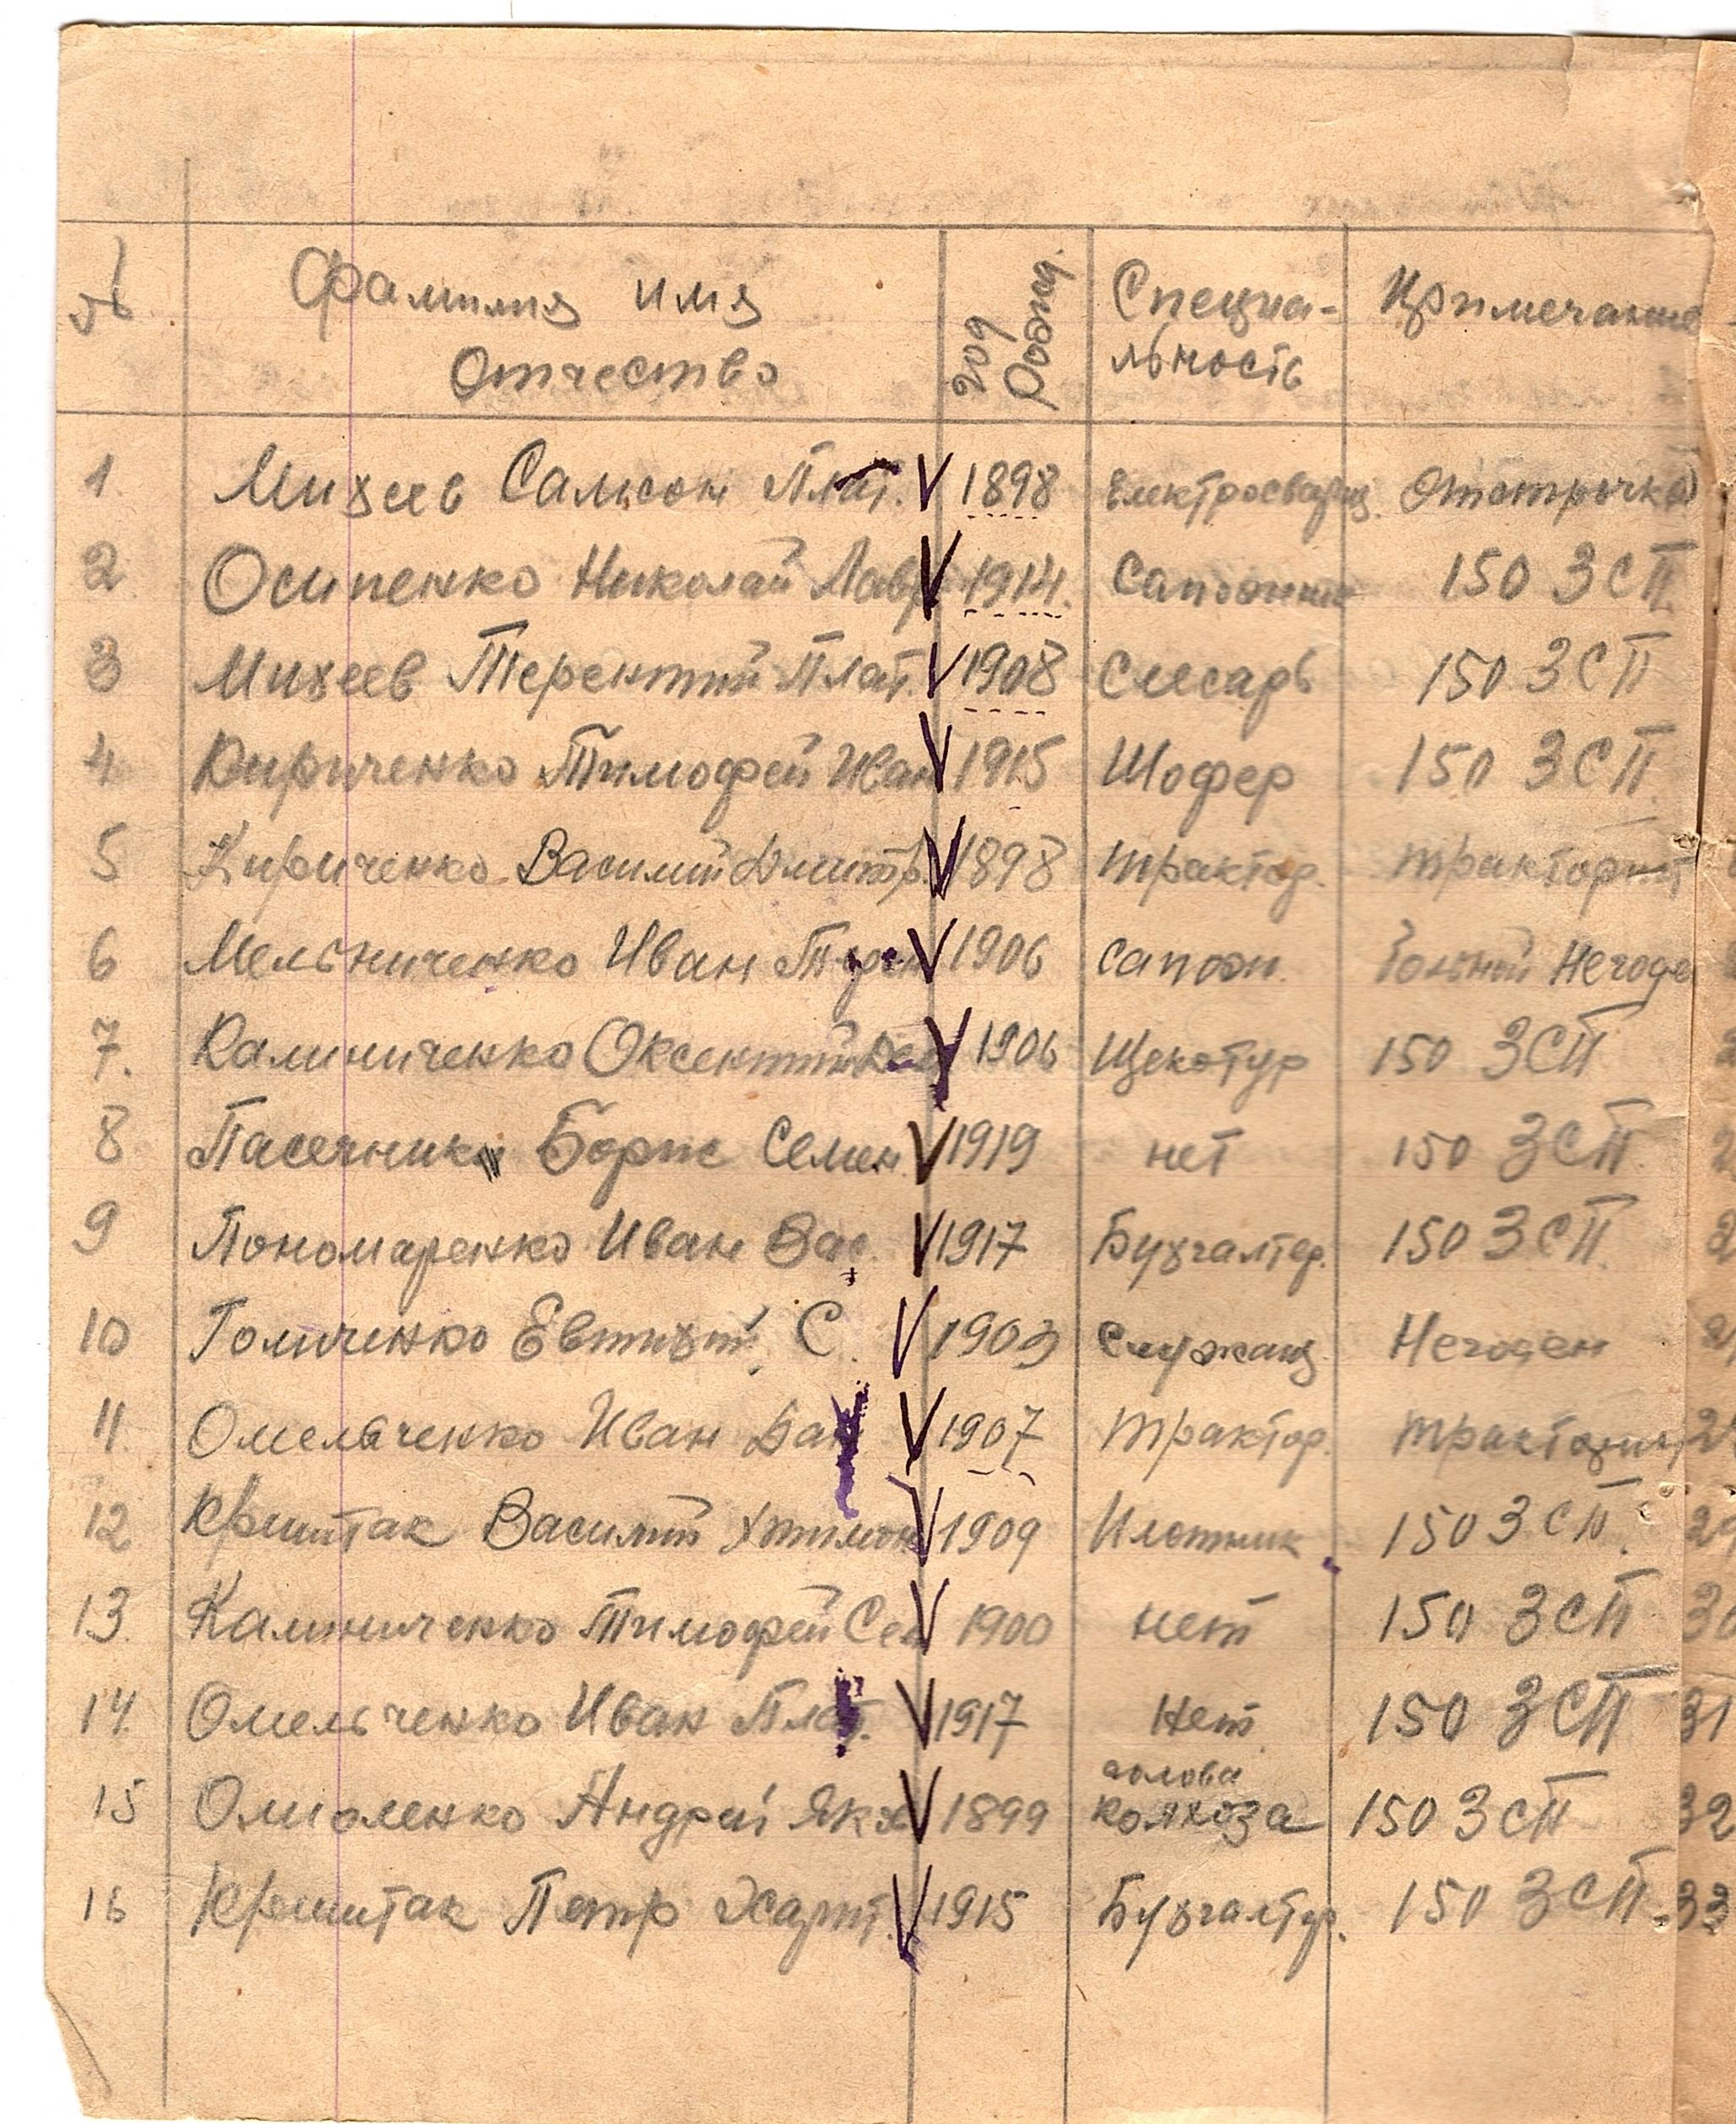 № Фамилия имя Отчество год Рожд. Специальность Примечание
1. Михеев Самсон Плат. 1898 Електросварщ. Отстрочка
2. Осипенко Николай Лавр 1914. Сапожник 150 ЗСП
3 Михеев Терентий Плат. 1908 Слесарь 150 ЗСП
4 Кириченко Тимофей Иван 1915 Шофер 150 ЗСП.
5 Кириченко Василий Дмитр. 1898 трактор. тракторист
6 Мельниченко Иван 1906 сапожн. Больной Негоде
7. Калиниченко Оксентий 1906 Щекотур 150 ЗСП
8 Пасечник Борис Семен. 1919 нет 150 ЗСП.
9 Пономаренко Иван Вас. 1917 Бухгалтер. 150 ЗСП.
10 Голиченко Евтихий С. 1903 Служащ. Негоден
11. Омельченко Иван 1907 трактор. тракторист
12 Криштак Василий 1909 Плотник 150 ЗСП.
13. Калиниченко Тимофей Сем 1900 нет 150 ЗСП
14. Омельченко Иван Плат. 1917 Нет. 150 ЗСП
15 Омеленко Андрей Як 1899 голова колхоза 150 ЗСП
16 Криштак Петр Харит. 1915 Бухгалтер. 150 ЗСП.
31
32
33